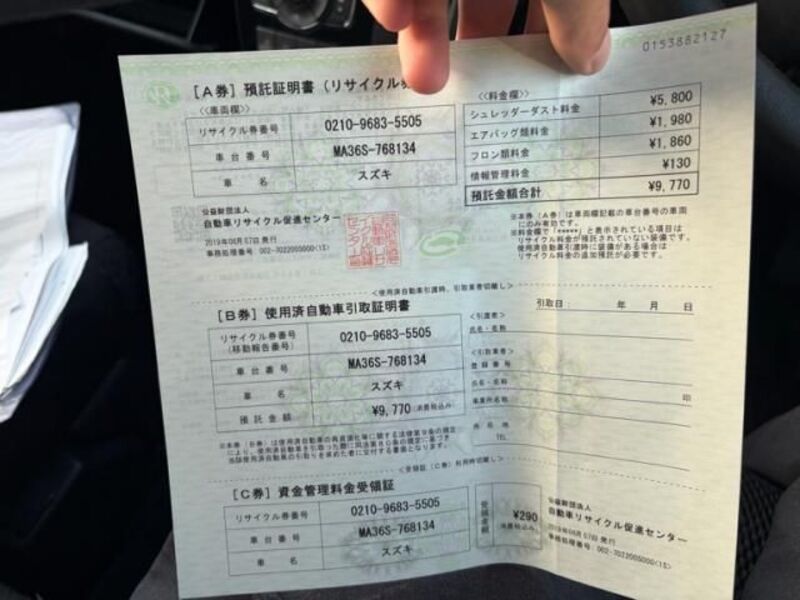 0153882127
[A券] 預託証明書 (リサイクル券
<<車両欄>>
リサイクル券番号 0210-9683-5505
車台番号 MA36S-768134
車名 スズキ
<<料金欄>>
シュレッダーダスト料金 ¥5,800
エアバッグ類料金 ¥1,980
フロン類料金 ¥1,860
情報管理料金 ¥130
預託金額合計 ¥9,770
公益財団法人
自動車リサイクル促進センター
2019年06月07日 発行
事務処理番号: 002-7022005000(1S)
※本券(A券)は車両欄記載の車台番号の車両
にのみ有効です。
※料金欄で「*****」と表示されている項目は
リサイクル料金が預託されていない装備です。
使用済自動車引渡時に装備がある場合は
リサイクル料金の追加預託が必要です。
<使用済自動車引渡時、引取業者切離し>
[B券] 使用済自動車引取証明書
リサイクル券番号
(移動報告番号) 0210-9683-5505
車台番号 MA36S-768134
車名 スズキ
預託金額 ¥9,770(消費税込み)
※本券(B券)は使用済自動車の再資源化等に関する法律第9条の規定
により、使用済自動車を引取った際に同法第80条の規定に基づき
当該使用済自動車の引取りを求めた者に交付する書面となります。
引取日 年 月 日
<引渡者>
氏名・名称
<引取業者>
登録番号
氏名・名称
事業所名称 印
所在地
TEL
<受領証(C券)利用時切離し>
[C券] 資金管理料金受領証
リサイクル券番号 0210-9683-5505
車台番号 MA36S-768134
車名 スズキ
受領金額 ¥290
消費税込み
公益財団法人
自動車リサイクル促進センター
2019年06月07日 発行
事務処理番号: 002-7022005000(1S)